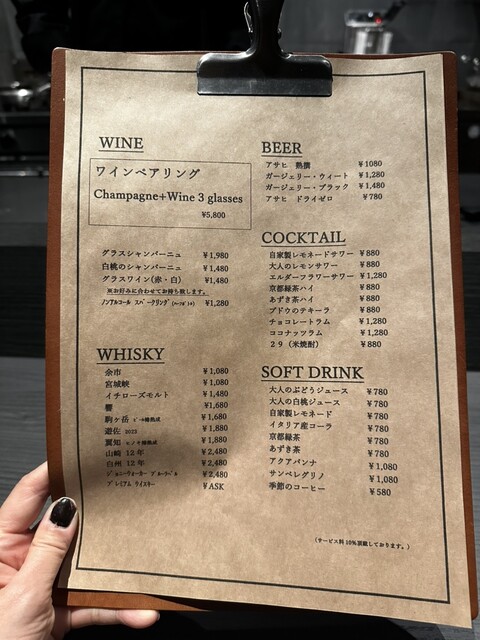 WINE
ワインペアリング
Champagne+Wine 3 glasses
¥5,800
グラスシャンパーニュ ¥1,980
白桃のシャンパーニュ ¥1,480
グラスワイン(赤・白) ¥1,480
※お好みに合わせてお持ち致します。
ノンアルコール スパークリング ¥1,280
WHISKY
余市 ¥1,080
宮城峡 ¥1,080
イチローズモルト ¥1,480
響 ¥1,680
駒ケ岳 ¥1,680
遊佐 2023 ¥1,880
厚岸 ¥1,880
山崎 12年 ¥2,480
白州 12年 ¥2,480
ジョニーウォーカー ブルーラベル ¥2,480
プレミアム ウイスキー ¥ASK
BEER
アサヒ 熟撰 ¥1080
ガージェリー・ウィート ¥1,280
ガージェリー・ブラック ¥1,480
アサヒ ドライゼロ ¥780
COCKTAIL
自家製レモネードサワー ¥880
大人のレモンサワー ¥880
エルダーフラワーサワー ¥1,280
京都緑茶ハイ ¥880
あずき茶ハイ ¥880
ブドウのテキーラ ¥880
チョコレートラム ¥1,280
ココナッツラム ¥1,280
29(米焼酎) ¥880
SOFT DRINK
大人のぶどうジュース ¥780
大人の白桃ジュース ¥780
自家製レモネード ¥780
イタリア産コーラ ¥780
京都緑茶 ¥780
あずき茶 ¥780
アクアパンナ ¥1,080
サンペレグリノ ¥1,080
季節のコーヒー ¥580
(サービス料10%頂戴しております。)